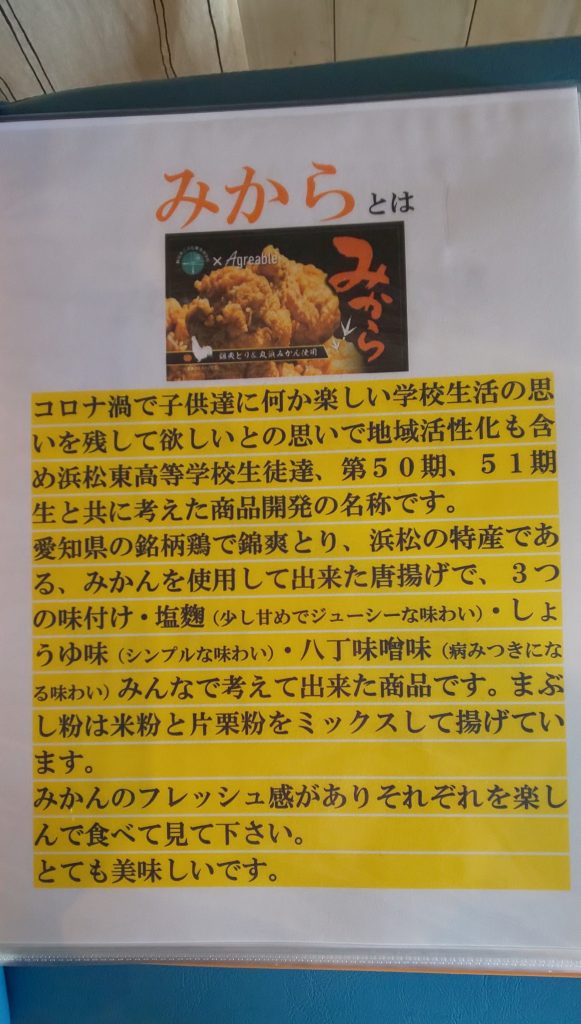 みからとは
× Agreable
みから
錦爽とり&丸浜みかん使用
コロナ渦で子供達に何か楽しい学校生活の思
いを残して欲しいとの思いで地域活性化も含
め浜松東高等学校生徒達、第５０期、５１期
生と共に考えた商品開発の名称です。
愛知県の銘柄鶏で錦爽とり、浜松の特産であ
る、みかんを使用して出来た唐揚げで、３つ
の味付け・塩麴（少し甘めでジューシーな味わい）・しょ
うゆ味（シンプルな味わい）・八丁味噌味（病みつきにな
る味わい）みんなで考えて出来た商品です。まぶ
し粉は米粉と片栗粉をミックスして揚げてい
ます。
みかんのフレッシュ感がありそれぞれを楽し
んで食べて見て下さい。
とても美味しいです。